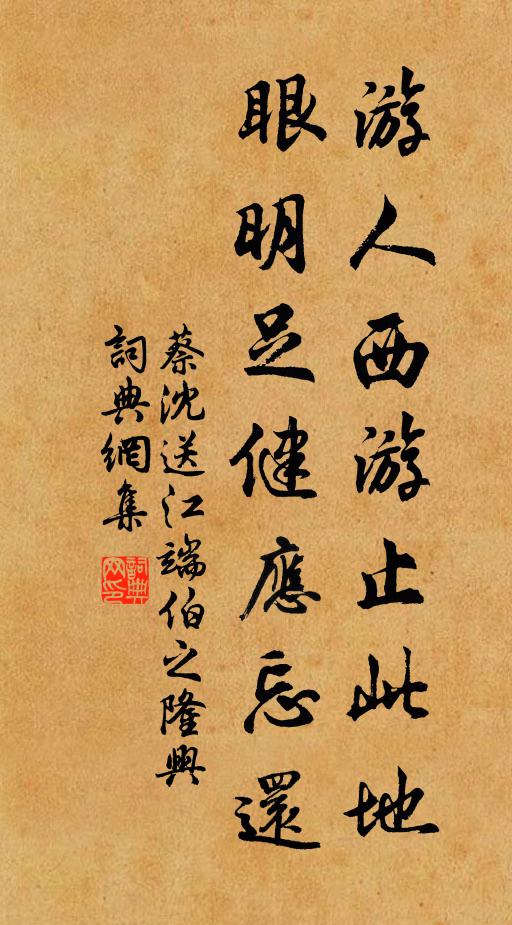 游人西游止此地
眼明足健應忘還
蔡沈送江端伯之隆興
詞典網集
詞典网印